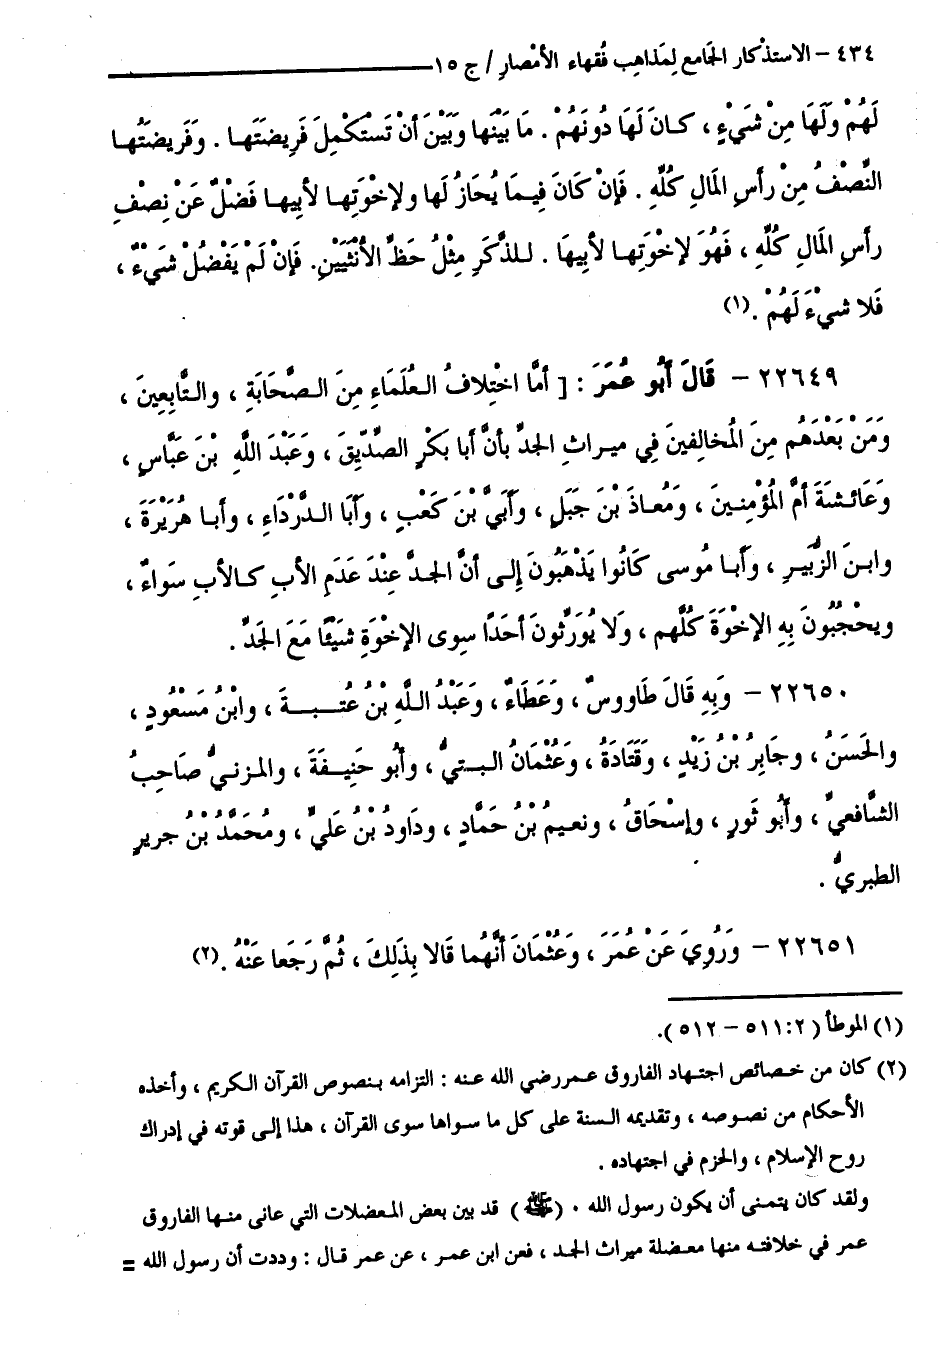 ٤٣٤ – الاستذْكار الجَامع لِمَذاهِب فُقهاء الأمْصارِ / ج ١٥
لَهُمْ وَلَهَا مِنْ شَيْءٍ ، كـانَ لَهَا دُونَهُمْ . مَا بَيْنَها وَبَيْنَ أنْ تَسْتَكْمِلَ فَرِيضَتَهـا . وَفَرِيضَتُهـا
النِّصْفُ مِنْ رأسِ المَالِ كُلِّهِ . فَإنْ كَانَ فِيـمَا يُحَازُ لَها ولإخْوَتِهـا لأبِيهـا فَضْلٌ عَنْ نِصْفِ
رأسِ المَالِ كُلِّهِ ، فَهُوَ لإخْوَتِهـا لأبِيهَا . لـلذَّكَرِ مِثْلُ حَظِّ الأُنْثَيَيْنِ. فَإنْ لَمْ يَفْضُلْ شَيْءٌ ،
فَلا شَيْءَ لَهُمْ .(١)
٢٢٦٤٩ – قَالَ أَبُو عُمَرَ : [ أمَّا اخْتِلافُ الـعُلَمَاءِ مِنَ الـصَّحَابَةِ ، والتَّابِعِينَ ،
وَمَنْ بَعْدَهُم مِنَ المُخالِفينَ فِي ميـراثِ الجدِّ بأنَّ أبا بَكْرٍ الصِّدِّيقَ ، وَعَبْدَ اللَّهِ بْنَ عَبَّاسٍ ،
وَعَائـشَةَ أمَّ المُؤْمِنـينَ ، وَمُعـاذَ بْنَ جَبَلٍ ، وأُبَيَّ بْنَ كَعْبٍ ، وَأبَا الـدَّرْدَاءِ ، وأبـا هُرَيْرَةَ ،
وابـنَ الزُّبَيْـرِ ، وَأبـا مُوسى كَانُوا يَذْهَبُونَ إلـى أنَّ الجَدَّ عِنْدَ عَدَمِ الأبِ كـالأبِ سَواءٌ ،
ويحْجُبُونَ بِهِ الإخْوَةَ كُلَّهم ، ولا يُوَرِّثُونَ أحَدًا سِوى الإخْوَةِ شَيْئًا مَعَ الجَدِّ .
٢٢٦٥٠ – وَبِهِ قَالَ طَاووسٌ ، وَعَطَاءٌ ، وَعَبْدُ الـلَّهِ بْنُ عُتـبـــةَ ، وابْنُ مَسْعُودٍ ،
والحَسَنُ ، وجَابِرُ بْنُ زَيْدٍ ، وَقَتَادَةُ ، وَعُثْمَانُ البـتيُّ ، وأبُو حَنِيـفَةَ ، والمـزنيُّ صَاحِبُ
الشَّافعيِّ ، وَأبُو ثَورٍ ، وإسْحَاقُ ، ونعيمُ بْنُ حَمَّادٍ ، ودَاودُ بْنُ عَلِيٍّ ، ومُحَمَّدُ بْنُ جريرٍ
الطبريُّ .
٢٢٦٥١ – وَرُوِيَ عَنْ عُمَرَ ، وَعُثْمَانَ أنَّهُما قَالا بِذَلِكَ ، ثُمَّ رَجَعَا عَنْهُ .(٢)
(١) الموطأ ( ٢ :٥١١ – ٥١٢ ).
(٢) كان من خـصائص اجتهاد الفاروق عـمررضي الله عـنه : التزامه بـنصوص القرآن الـكريم ، وأخذه
الأحكام من نصـوصه ، وتقديمه السنة على كل ما سـواها سوى القرآن ، هذا إلـى قوته في إدراك
روح الإسلام ، والحزم في اجتهاده .
ولقد كان يتمنى أن يكون رسول الله . (ﷺ) قد بين بعض المـعضلات التي عانى منـها الفاروق
عمر في خلافته منها معـضلة ميراث الجـد ، فعن ابن عمـر ، عن عمر قـال : وددت أن رسول الله =